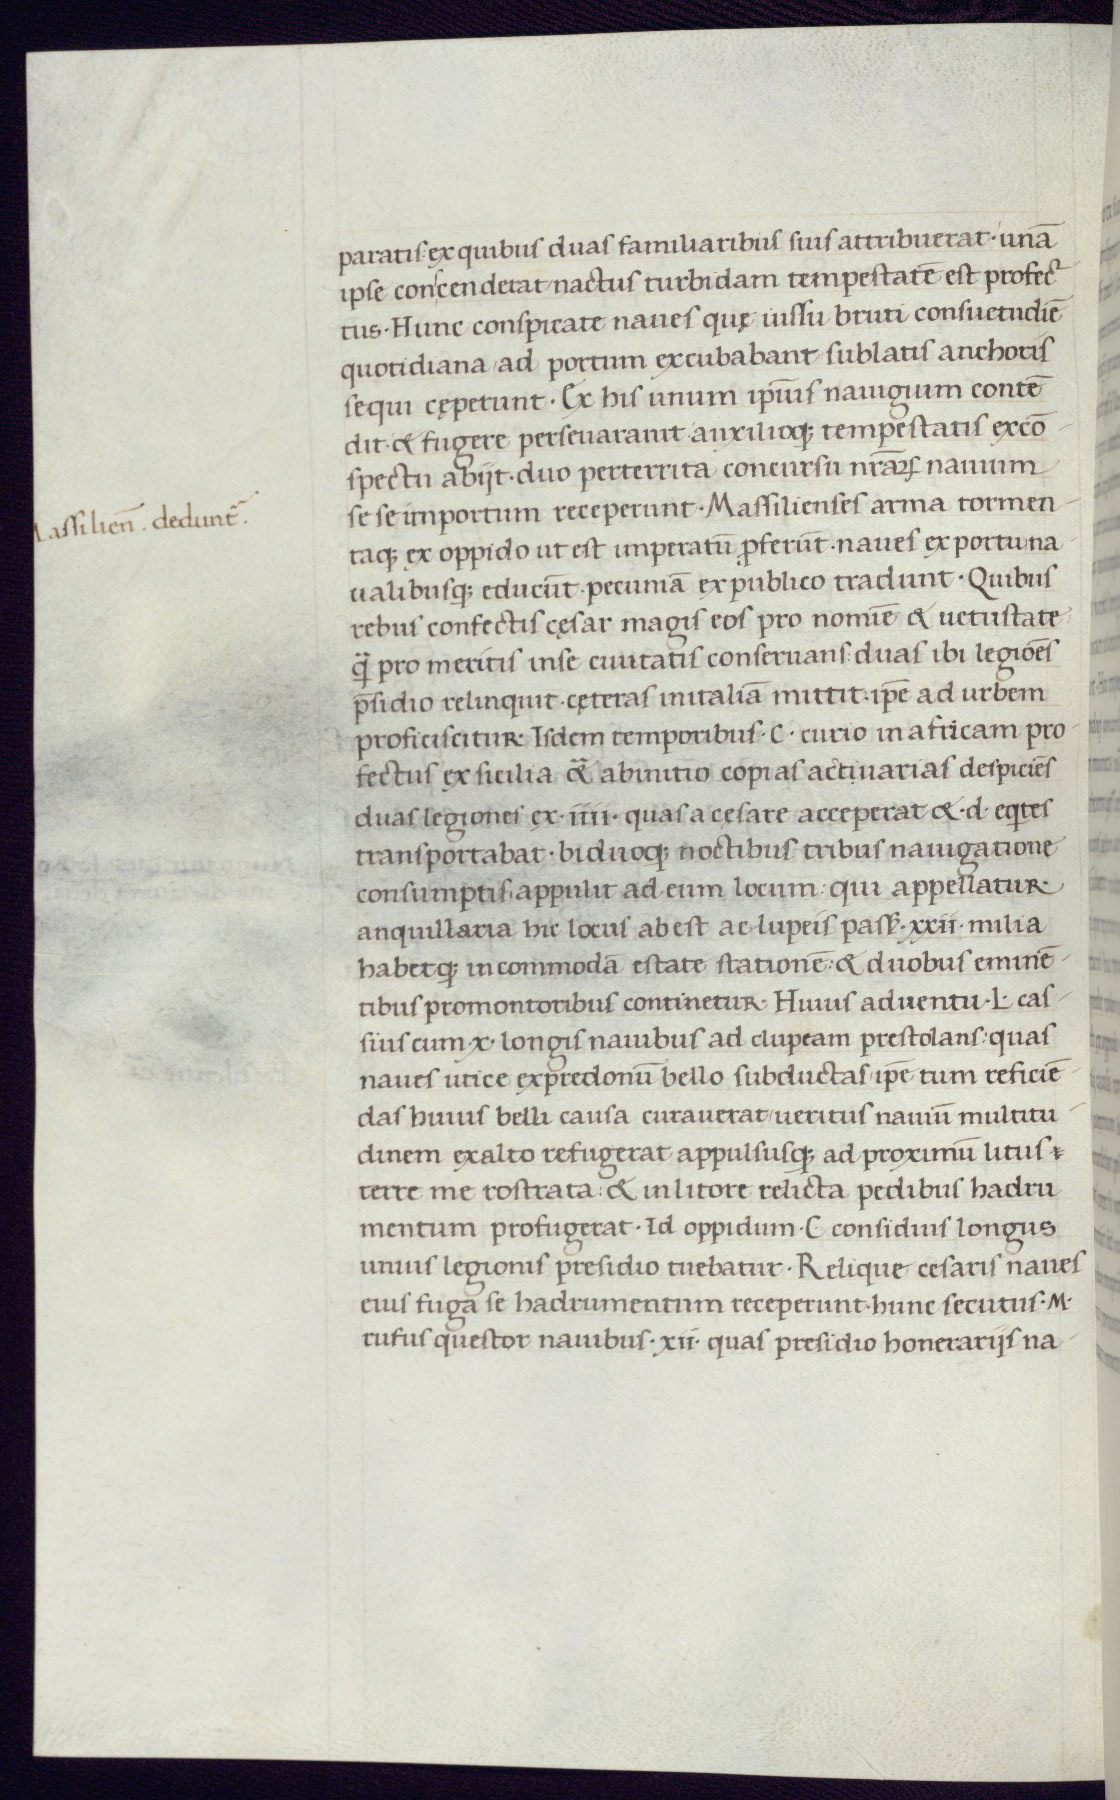 paratis: ex quibus duas familiaribus suis attribuerat · unā
ipse conscenderat nactus turbidam tempestatē est profec
tus · Hunc conspicate naues quę iussu bruti consuetudiē
quotidiana ad portum excubabant sublatis anchoris
sequi cęperunt · Ex his unum ip̄ius nauigium contē
dit · & fugere perseuarauit auxilioq; tempestatis ex cō
spectu abijt · duo perterrita concursu nr̄aꝝ nauium
se se inportum receperunt · Massilienses arma tormen
Massilien̄ . dedunt̄ .
taq; ex oppido ut est imperatū ꝓferūt · naues ex portu na
ualibusq; educūt · pecuniā ex publico tradunt · Quibus
rebus confectis cęsar magis eos pro nomiē & uetustate
q̄ pro meritis inse ciuitatis conseruans: duas ibi legiōes
p̄sidio relinquit · cęteras initaliā mittit · ip̄e ad urbem
proficiscitur · Isdem temporibus · C · curio in africam pro
fectus ex sicilia & abinitio copias actiuarias despiciēs
duas legiones ex · iiii · quas a cęsare acceperat & · d · eq̄tes
transportabat · biduoq; noctibus tribus nauigatione
consumptis appulit ad eum locum: qui appellatur
anquillaria hic locus abest ac lupeis pass̄ · xxii · milia
habetq; incommodā estate stationē: & duobus eminē
tibus promontoribus continetur · Huius aduentu · L · cas
sius cum · x · longis nauibus ad clupeam prestolans: quas
naues utice ex predonū bello subductas ip̄e tum reficiē
das huius belli causa curauerat ueritus nauiū multitu
dinem exalto refugerat appulsusq; ad proximū litus
terre me rostrata: & inlitore relicta pedibus hadru
mentum profugerat · Id oppidum · C considius longus
unius legionis presidio tuebatur · Relique cesaris naues
eius fuga se hadrumentum receperunt · hunc secutus · M ·
rufus questor nauibus · xii · quas presidio honerarijs na